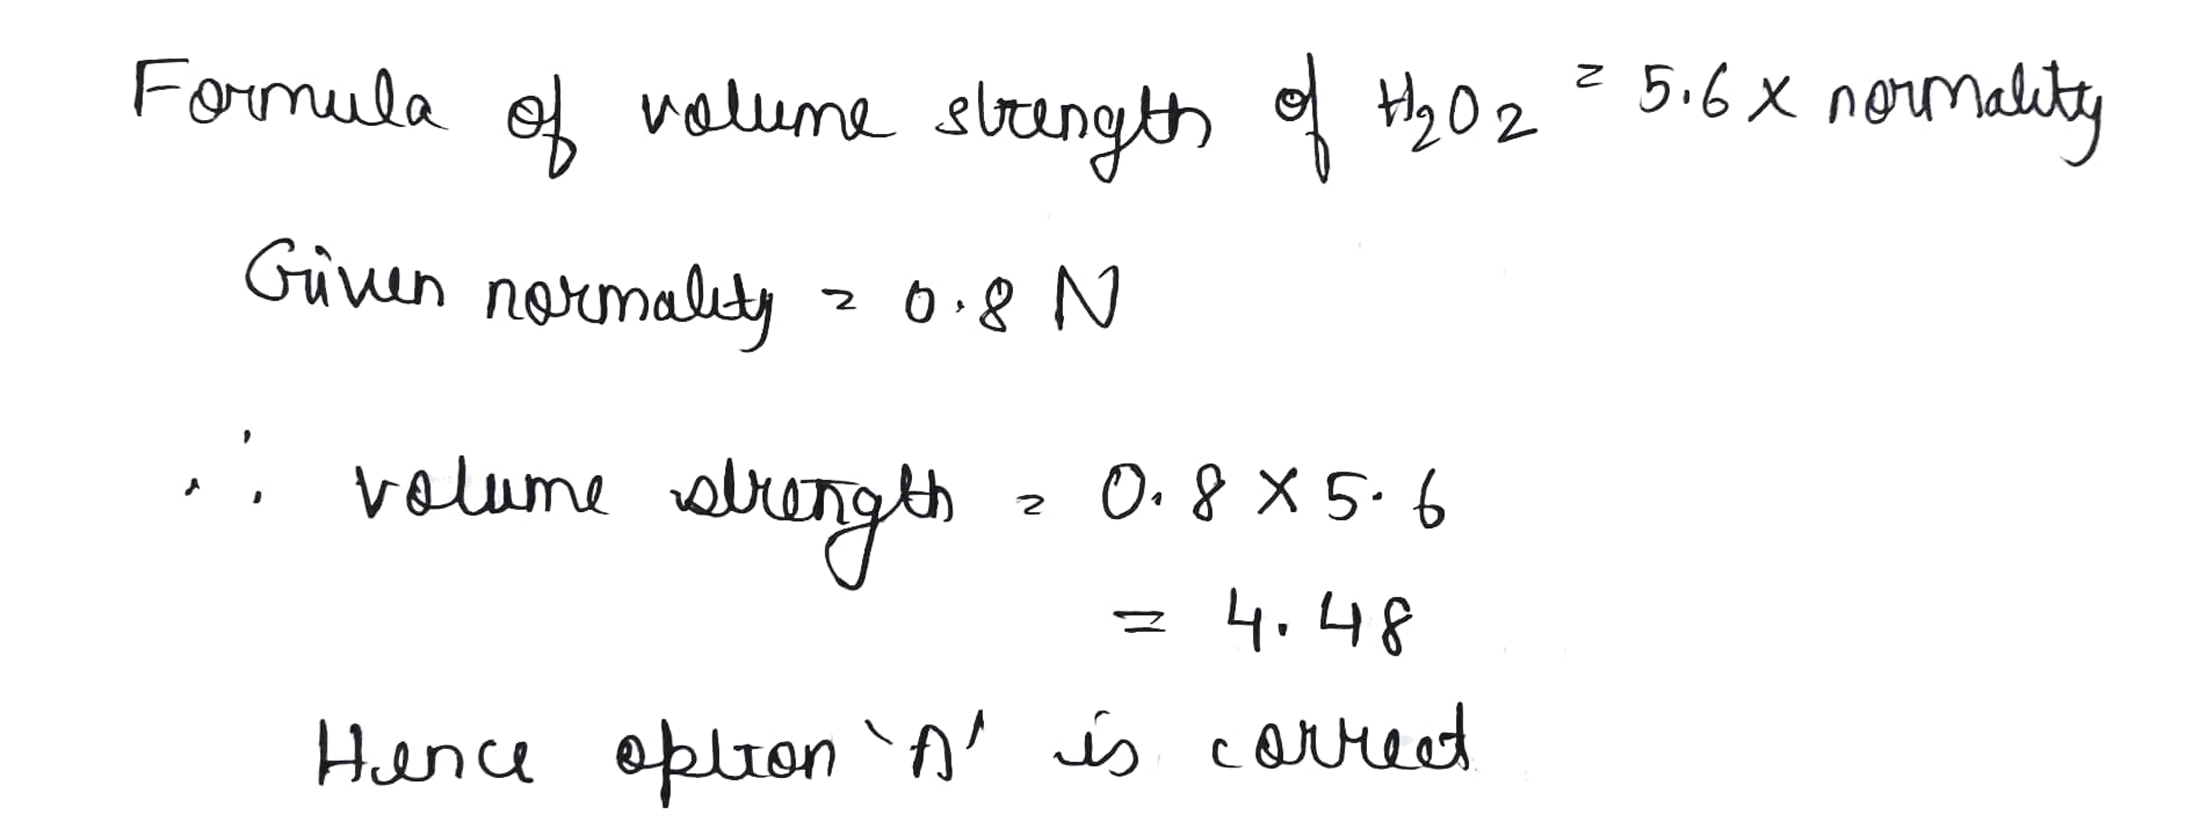 Formula of volume strength of H₂O₂ = 5.6 × normality
Given normality = 0.8 N
∴ volume strength = 0.8 × 5.6
= 4.48
Hence option 'A' is correct